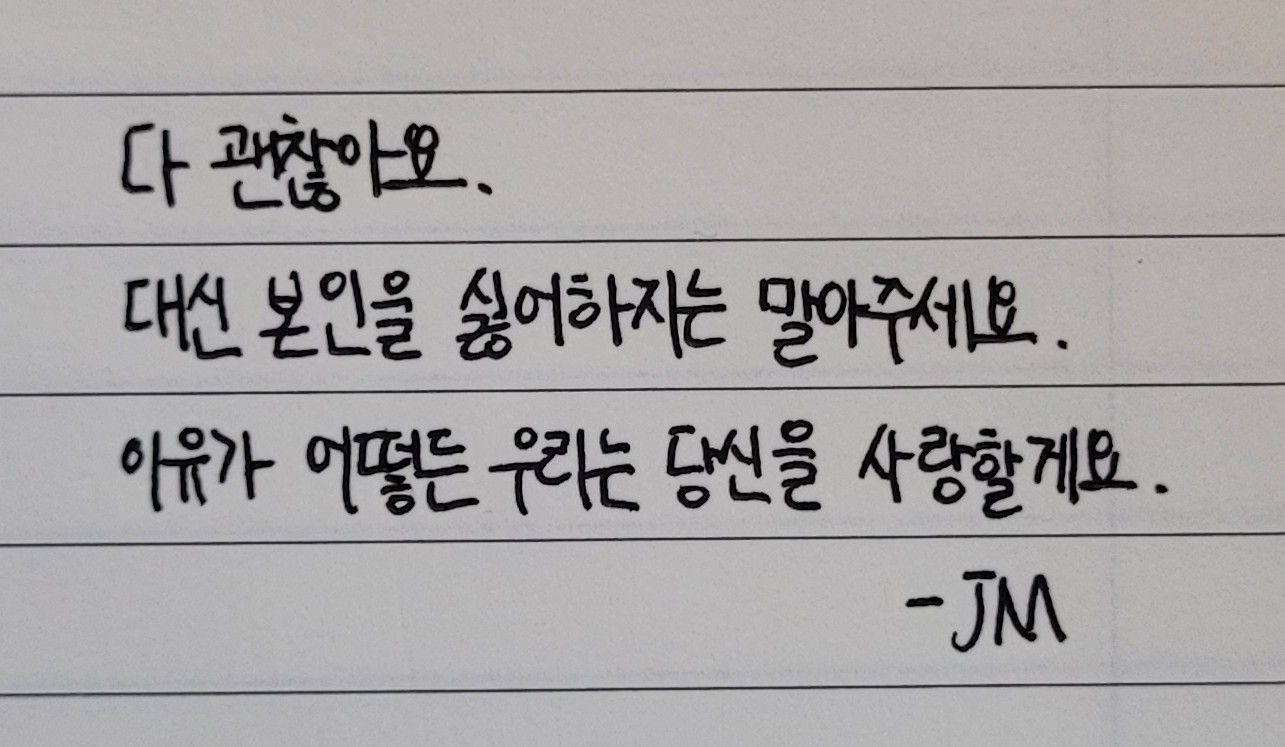 다 괜찮아요.
대신 본인을 싫어하지는 말아주세요.
이유가 어떻든 우리는 당신을 사랑할게요.
-JM